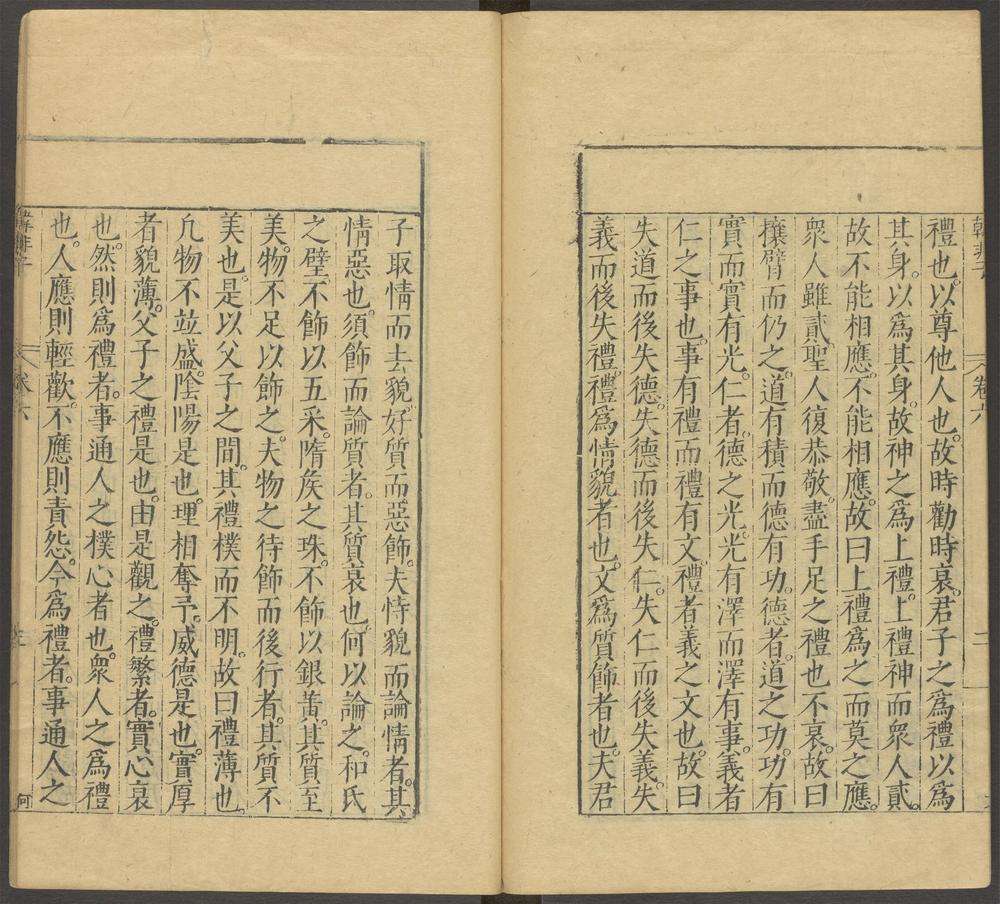 韓非子 卷六 二
禮也。以尊他人也。故時勸時衰。君子之爲禮以爲
其身。以爲其身。故神之爲上禮。上禮神而衆人貳。
故不能相應。不能相應。故曰上禮爲之而莫之應。
衆人雖貳。聖人復恭敬。盡手足之禮也不衰。故曰
攘臂而仍之。道有積而德有功。德者。道之功。功有
實而實有光。仁者。德之光。光有澤而澤有事。義者
仁之事也。事有禮而禮有文。禮者義之文也。故曰
失道而後失德。失德而後失仁。失仁而後失義。失
義而後失禮。禮爲情貌者也。文爲質飾者也。夫君
子取情而去貌。好質而惡飾。夫恃貌而論情者。其
情惡也。須飾而論質者。其質衰也。何以論之。和氏
之璧。不飾以五采。隋矦之珠。不飾以銀黃。其質至
美。物不足以飾之。夫物之待飾而後行者。其質不
美也。是以父子之間。其禮樸而不明。故曰禮薄也
凢物不竝盛。陰陽是也。理相奪予。威德是也。實厚
者貌薄。父子之禮是也。由是觀之。禮繁者。實心衰
也。然則爲禮者。事通人之樸心者也。衆人之爲禮
也。人應則輕歡。不應則責怨。今爲禮者。事通人之
韓非子 卷六 何